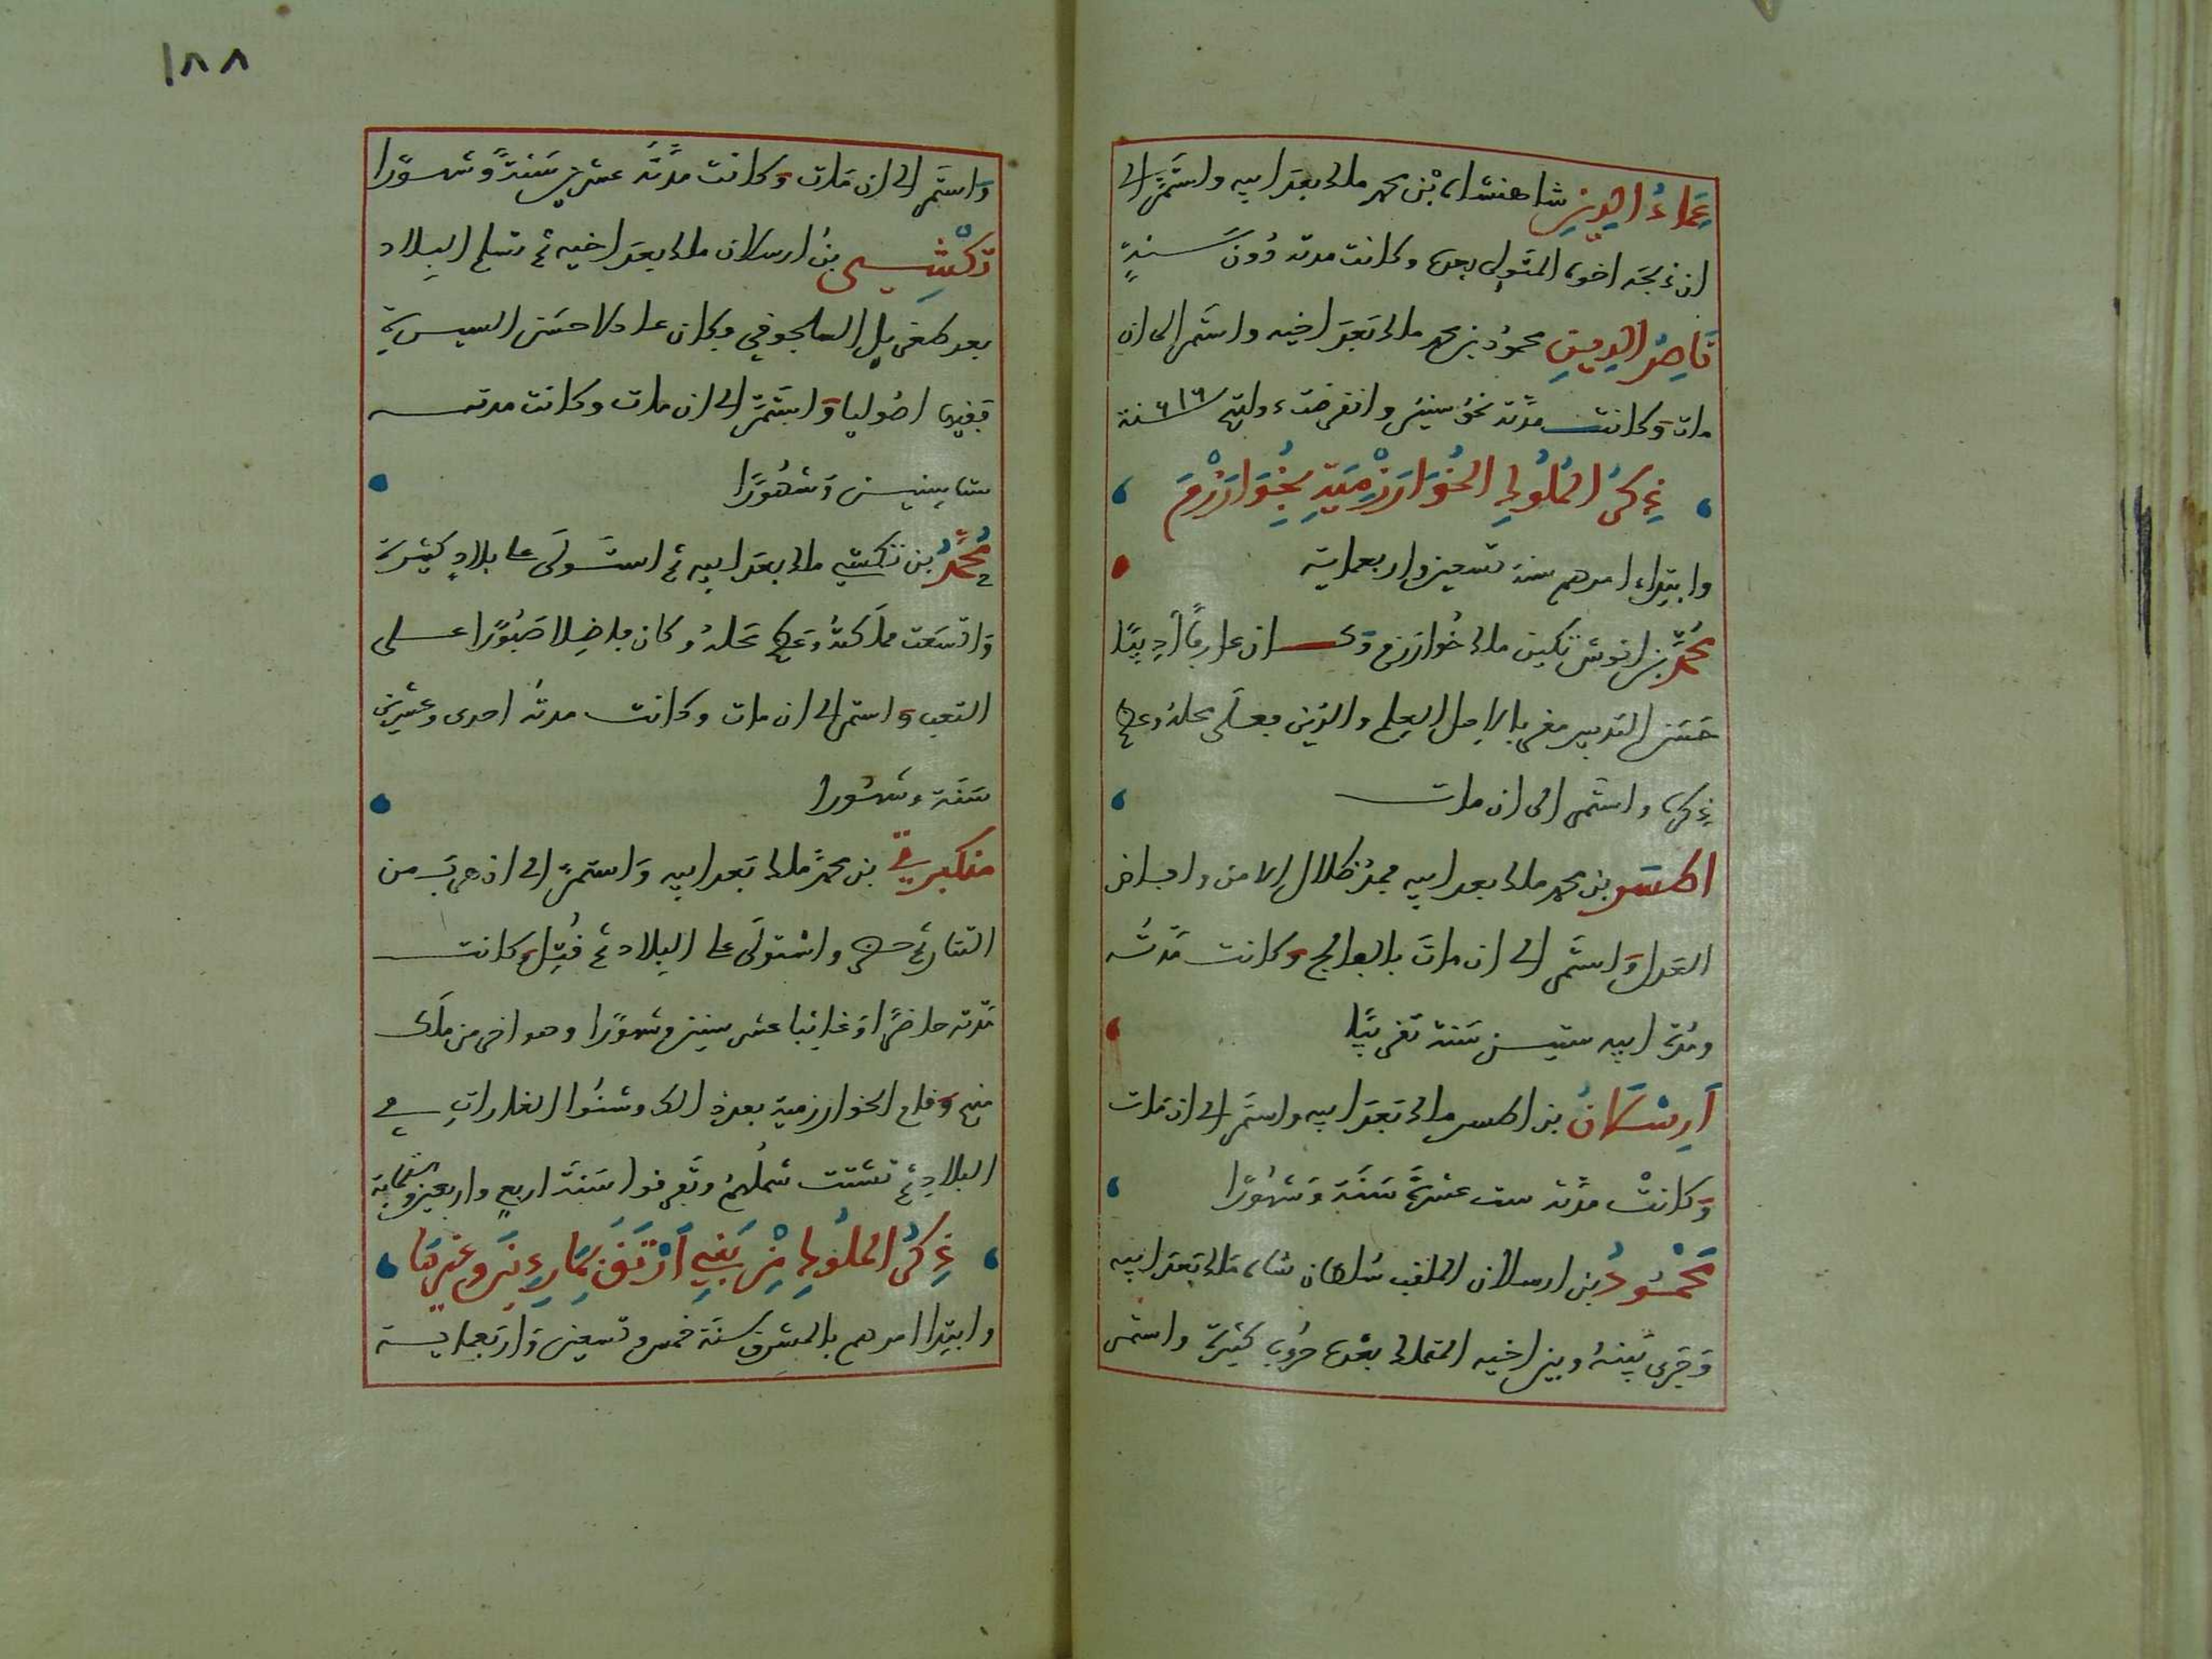 عماد الدين شاهنشاه بن محمد ملك بعد ابيه واستمر الى
ان ذبحه اخوه المتولي بعده وكانت مدته دون سنة
ناصر الدين محمود بن محمد ملك بعد اخيه واستمر الى ان
مات وكانت مدته نحو سنين وانقرضت دولتهم سنة ٦١٦
ذكر الملوك الخوارزمية بخوارزم
وابتداء امرهم سنة تسعين واربعماية
محمد بن انوش تكين ملك خوارزم وكان عارفا اديبا
حسن التدبير مقربا لاهل العلم والدين فعلى محله وعظم
ذكره واستمر الى ان مات
اطسر بن محمد ملك بعد ابيه فمد ظلال الامن وافاض
العدل واستمر الى ان مات بالفالج وكانت مدته
ومدة ابيه ستين سنة تقريبا
ارسلان بن اطسر ملك بعد ابيه واستمر الى ان مات
وكانت مدته ست عشرة سنة وشهورا
محمود بن ارسلان الملقب سلطان شاه ملك بعد ابيه
وجرى بينه وبين اخيه المتملك بعده حروب كثيرة واستمر
واستمر الى ان مات وكانت مدته عشرين سنة وشهورا
تكشي بن ارسلان ملك بعد اخيه ثم تسلم البلاد
بعد طغريل السلجوقي وكان عادلا حسن السيرة
فقيها اصوليا واستمر الى ان مات وكانت مدته
ست سنين وشهورا
محمد بن تكشي ملك بعد ابيه ثم استولى على بلاد كثيرة
واتسعت مملكته وعظم محله وكان فاضلا صبورا على
التعب واستمر الى ان مات وكانت مدته احدى وعشرين
سنة وشهورا
منكبرتي بن محمد ملك بعد ابيه واستمر الى ان هرب من
التتار ثم حضر واستولى على البلاد ثم قتل وكانت
مدته حاضرا وغايبا عشر سنين وشهورا وهو اخر من ملك
منهم وقام الخوارزمية بعد ذلك وشنوا الغارات في
البلاد ثم تشتت شملهم وتفرقوا سنة اربع واربعين وستماية
ذكر الملوك من بني ارتق بماردين وغيرها
وابتدا امرهم بالمشرق سنة خمس وتسعين واربعماية
١٨٨